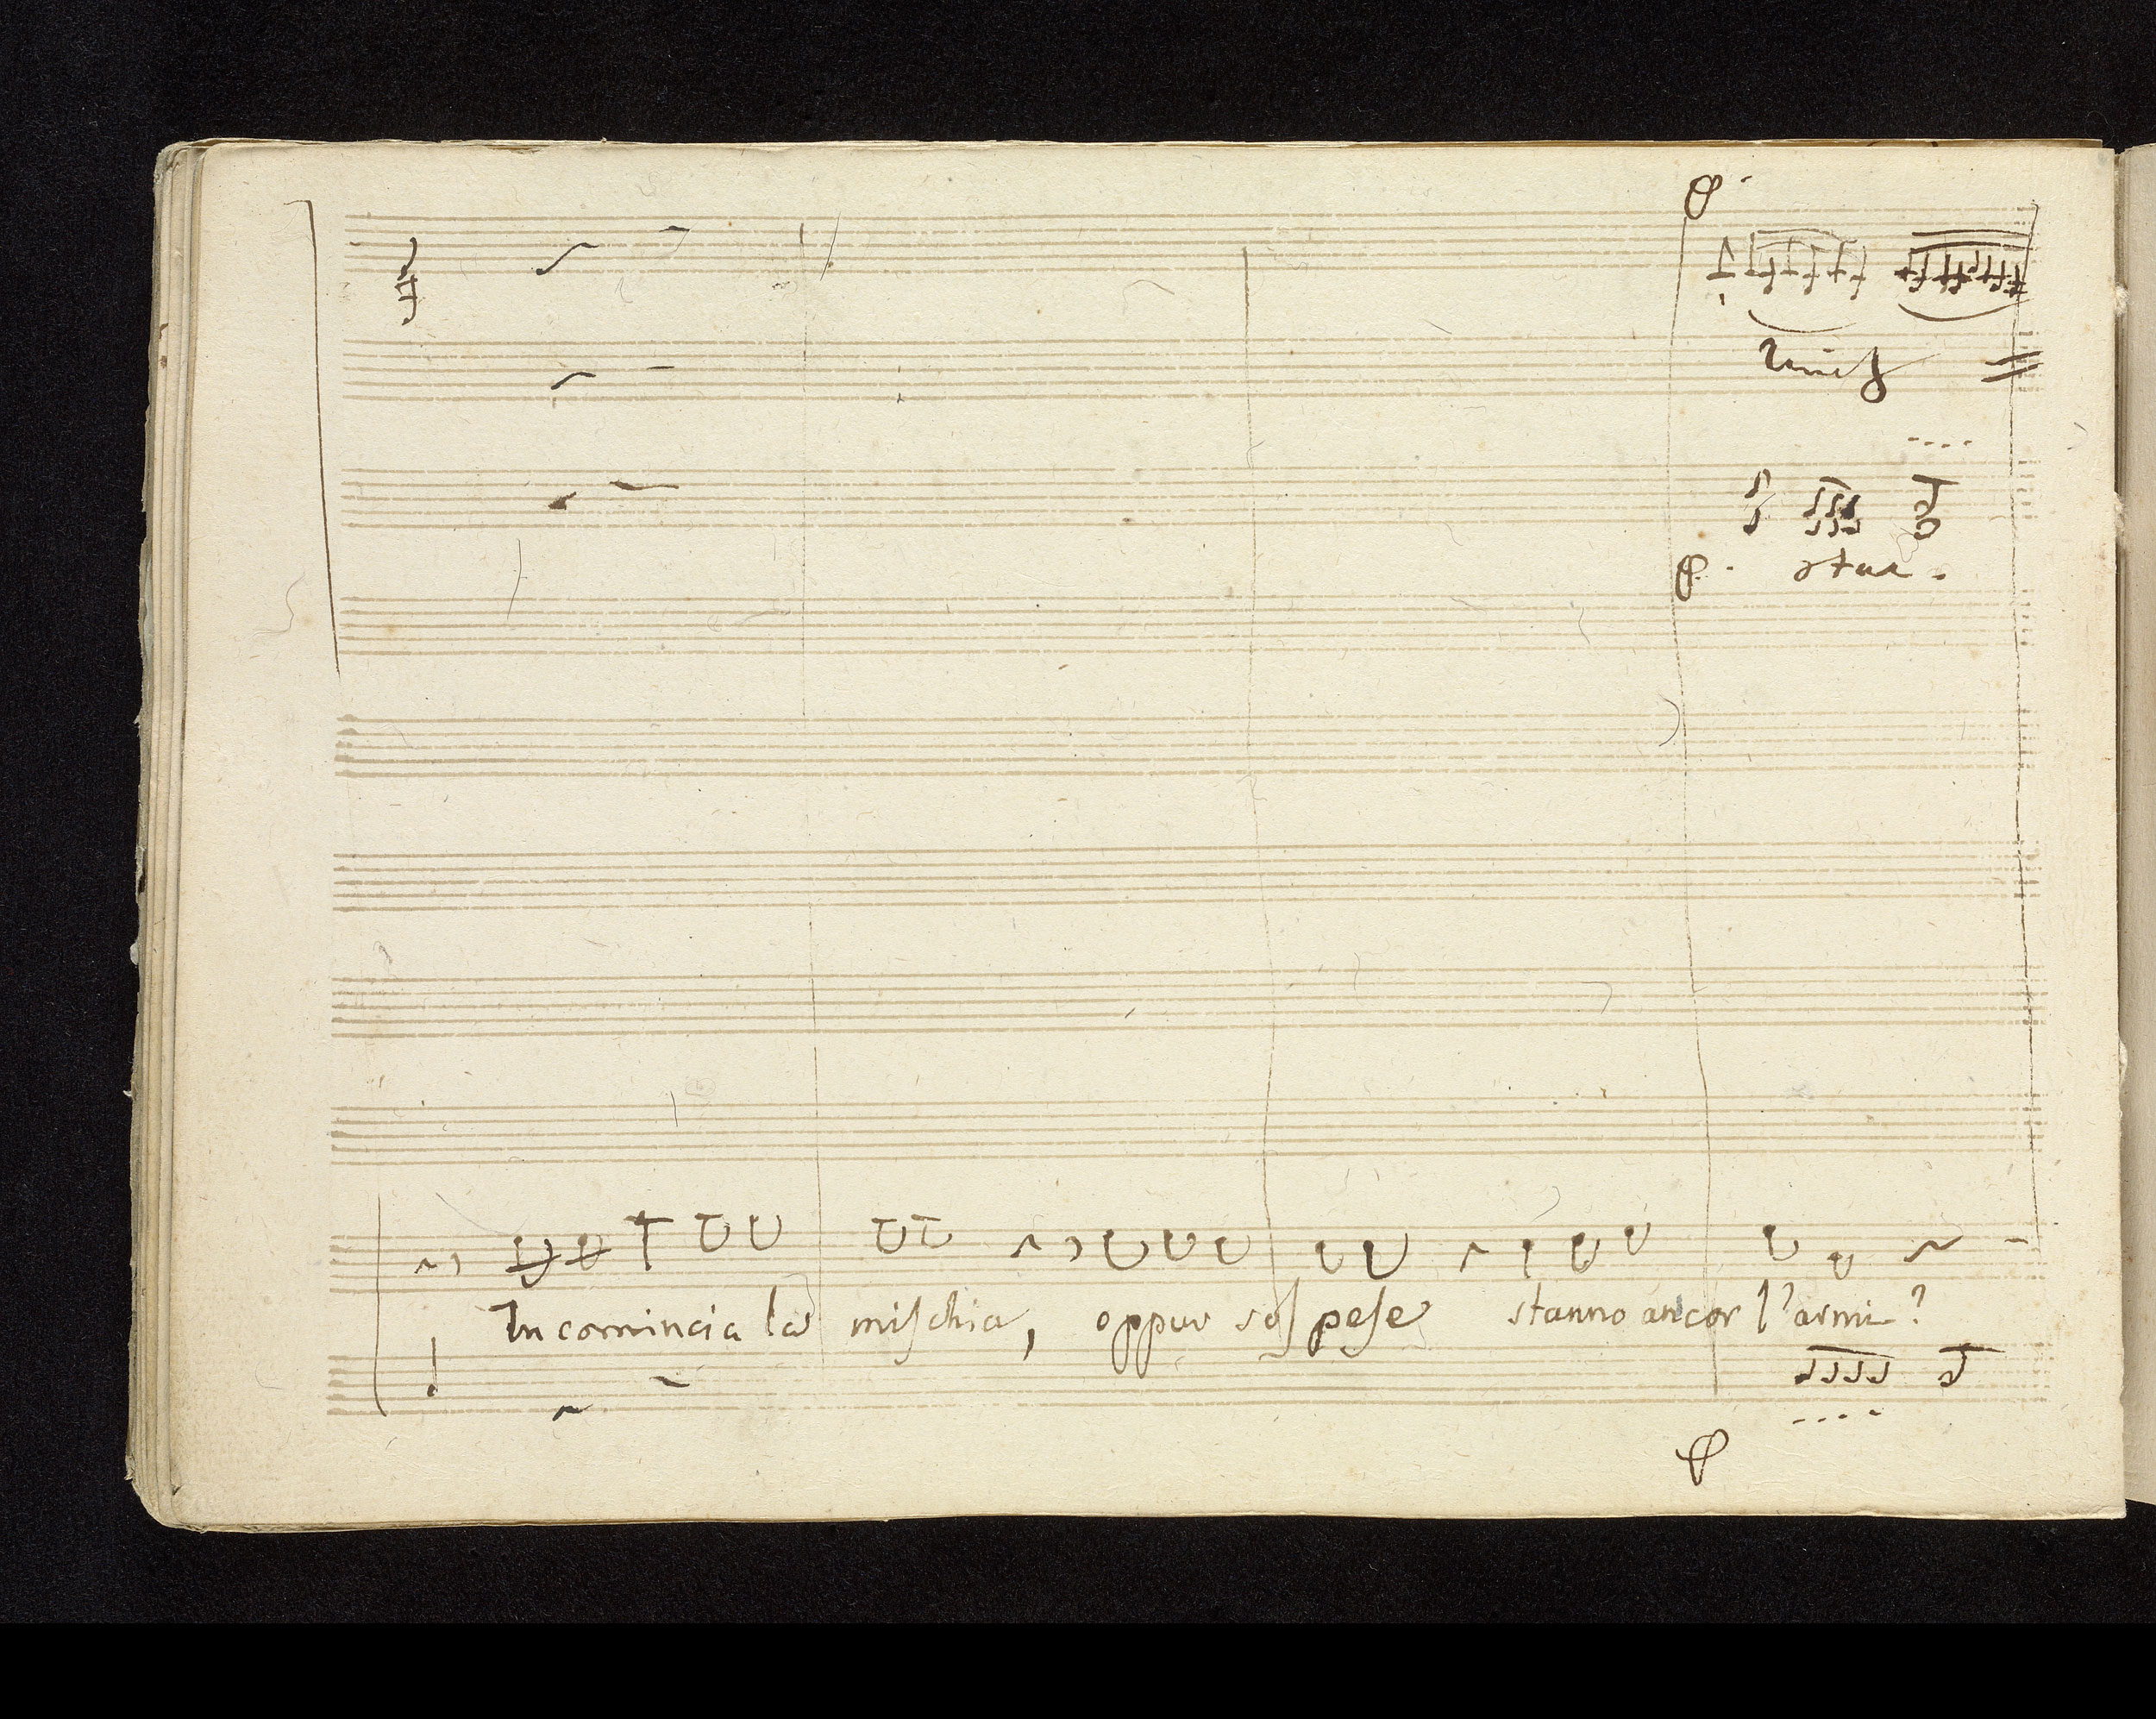 p.
unis
p. stac.
Incomincia la miſchia, oppur soſpeſe stanno ancor l'armi?
p